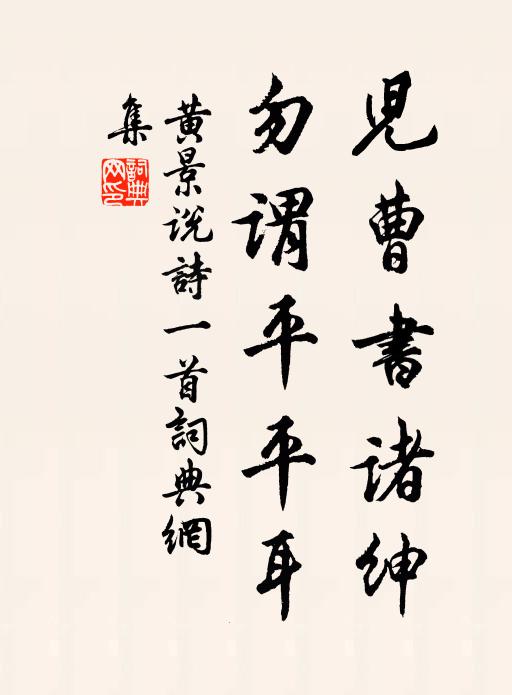 兒曹書諸紳
勿謂平平耳
黄景说詩一首詞典網
集
詞典網印